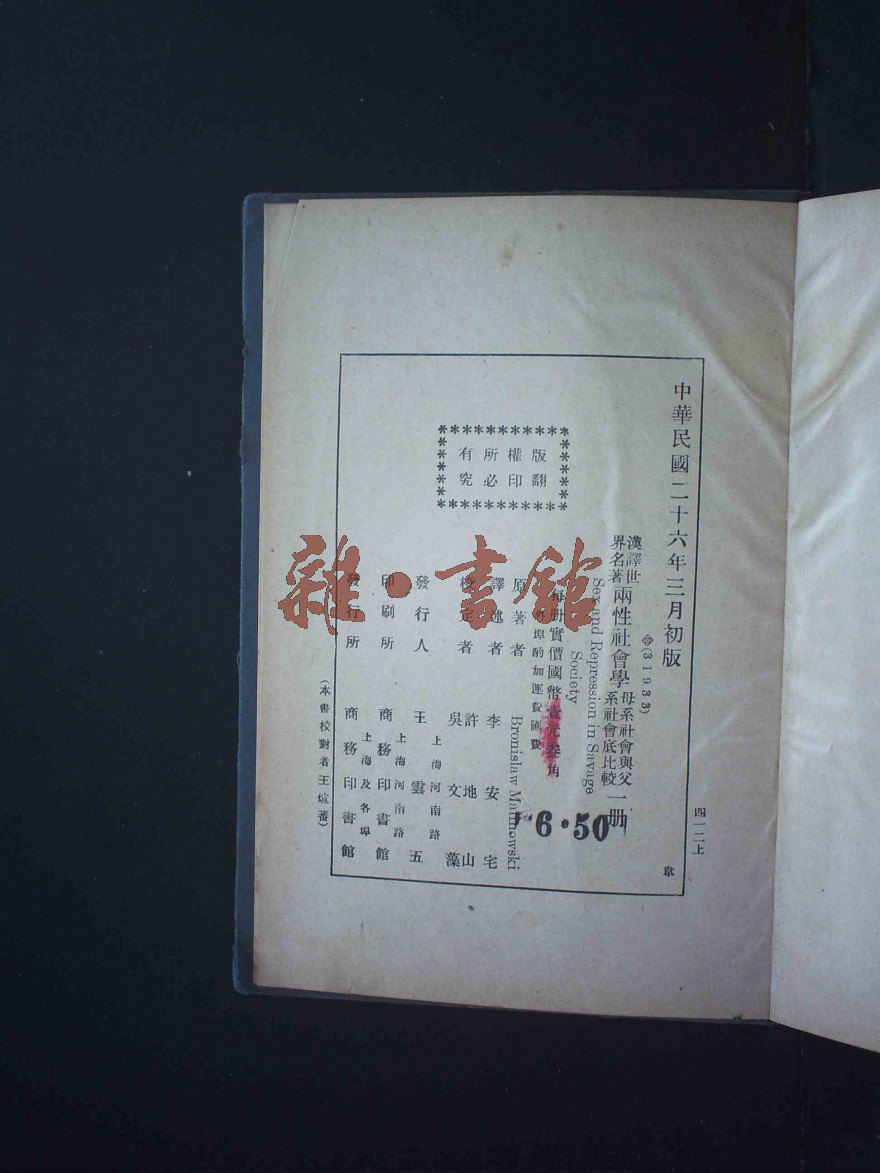 中華民國二十六年三月初版
(31933)
漢譯世界名著
兩性社會學
母系社會與父系社會底比較
一册
Sex and Repression in Savage Society
每册實價國幣壹元叁角
外埠酌加運費匯費
6.50
原著者 Bronislaw Malinowski
譯述者 李安宅
校定者 許地山 吳文藻
發行人 王雲五
上海河南路
印刷所 商務印書館
上海河南路
發行所 商務印書館
上海及各埠
版權所有
翻印必究
(本書校對者王煊蕃)
四一二上
雜·書館